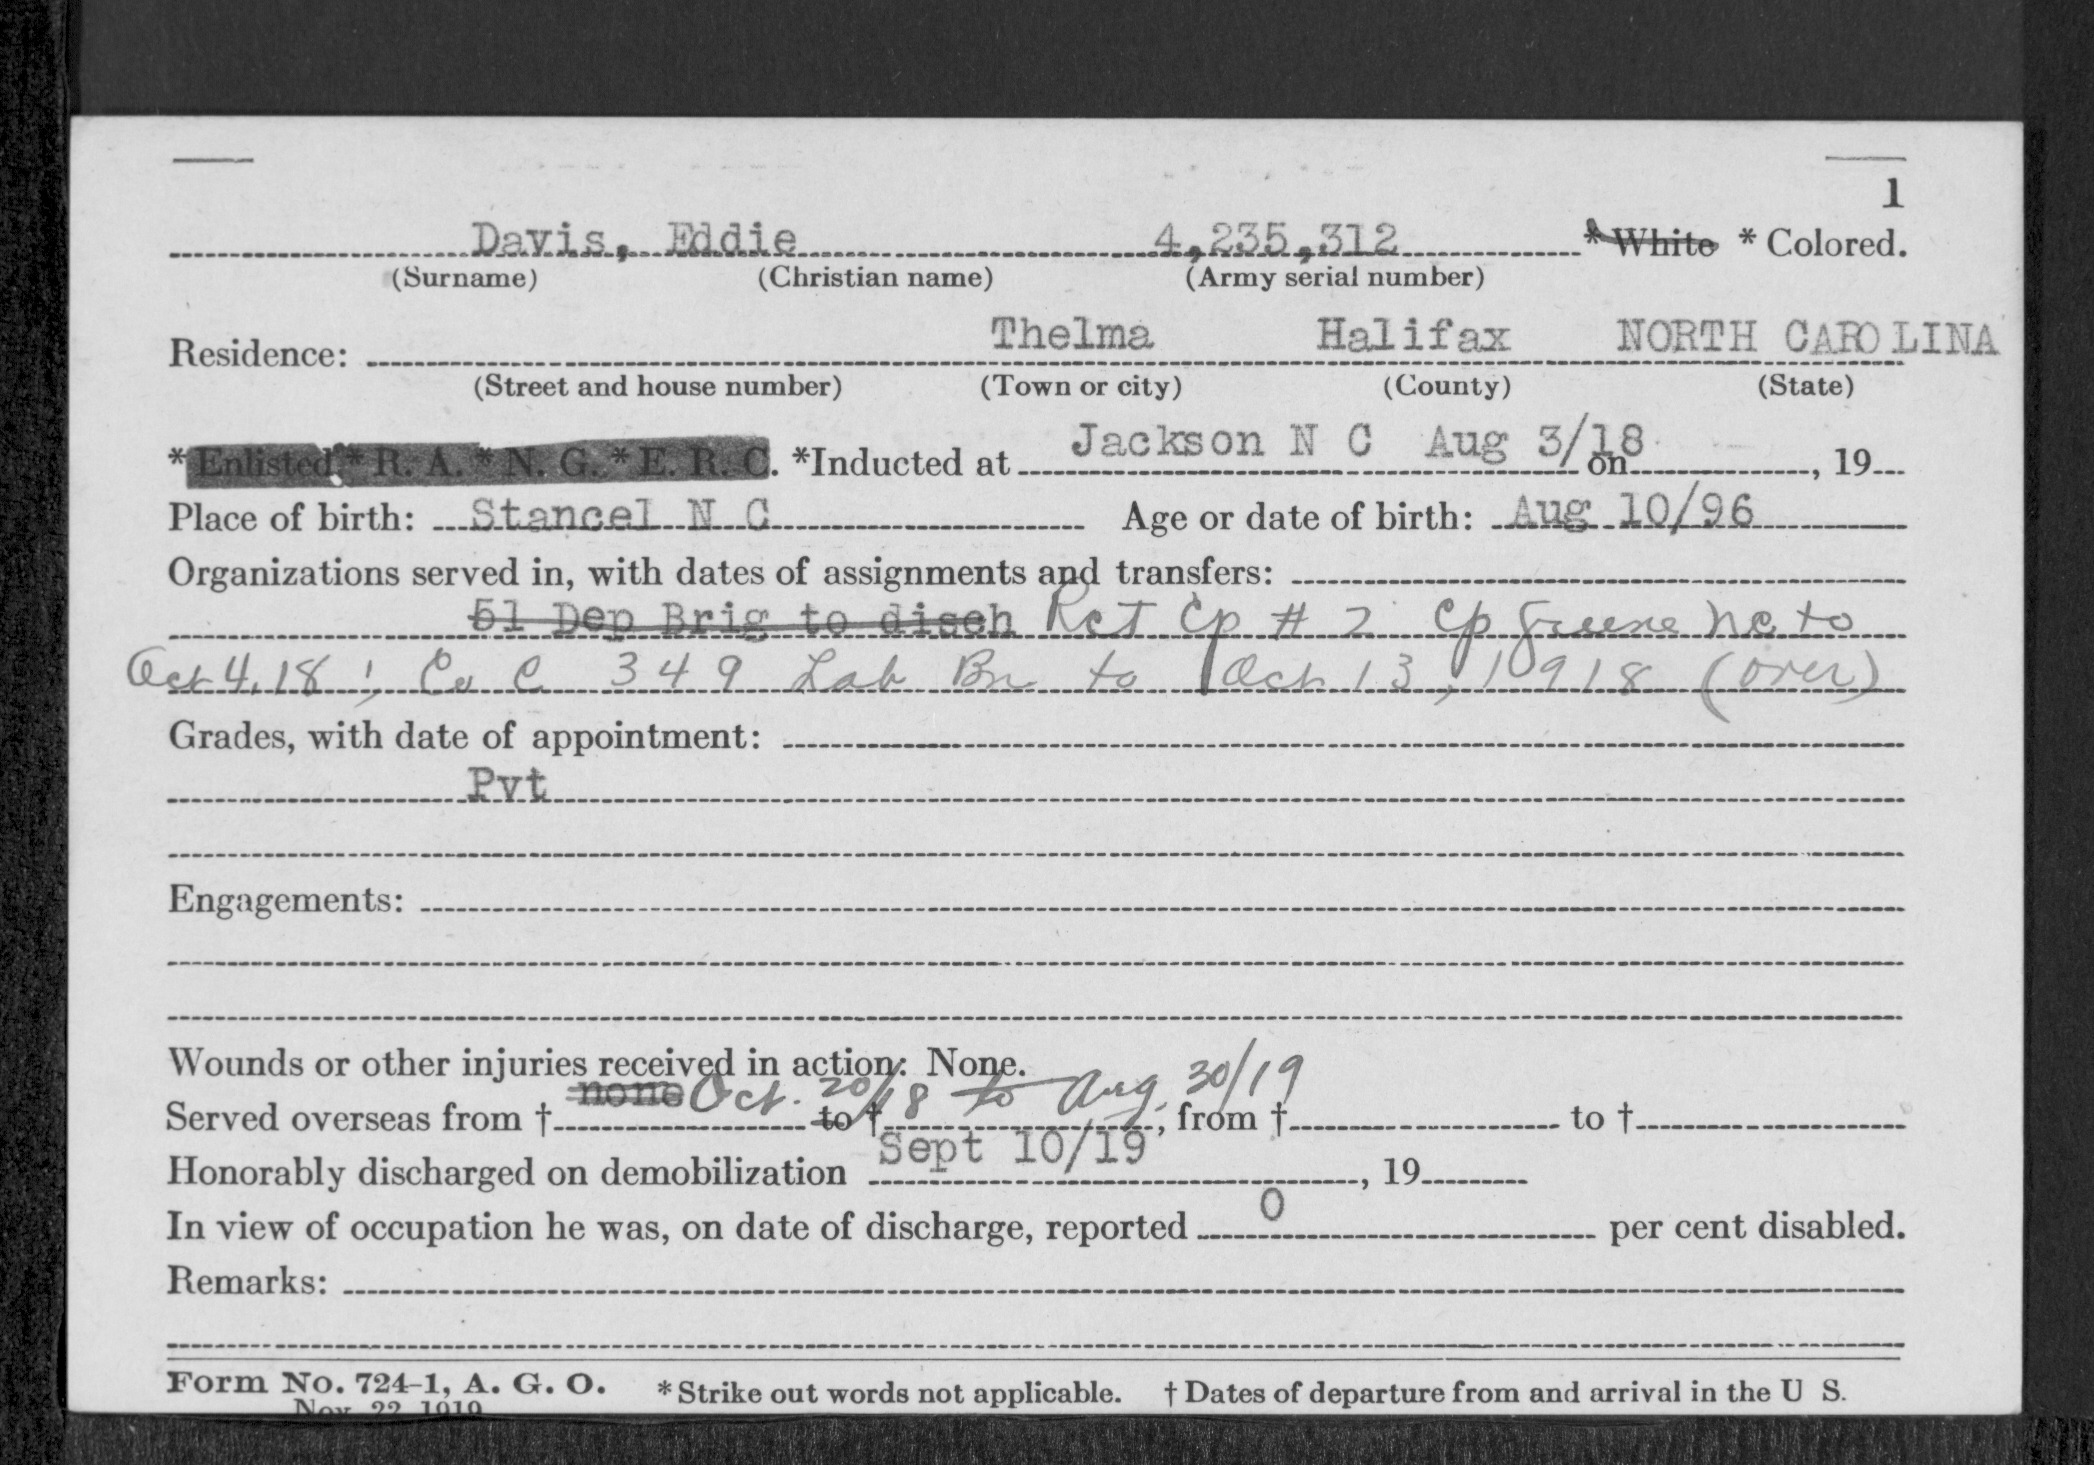 1
Davis, Eddie 4,235,312 * White * Colored.
(Surname) (Christian name) (Army serial number)
Residence: Thelma Halifax NORTH CAROLINA
(Street and house number) (Town or city) (County) (State)
* Enlisted * R. A. * N. G. * E. R. C. *Inducted at Jackson N C Aug 3/18 on , 19
Place of birth: Stancel N C Age or date of birth: Aug 10/96
Organizations served in, with dates of assignments and transfers:
51 Dep Brig to disch Rct Cp # 2 Cp Greene NC to
Oct 4, 18; Co C 349 Lab Bn to Oct 13, 1918 (over)
Grades, with date of appointment:
Pvt
Engagements:
Wounds or other injuries received in action: None.
none Oct. 20/18 to Aug. 30/19
Served overseas from † to † , from † to †
Honorably discharged on demobilization Sept 10/19 , 19
In view of occupation he was, on date of discharge, reported 0 per cent disabled.
Remarks:
Form No. 724-1, A. G. O. * Strike out words not applicable. † Dates of departure from and arrival in the U S.
Nov. 22, 1919